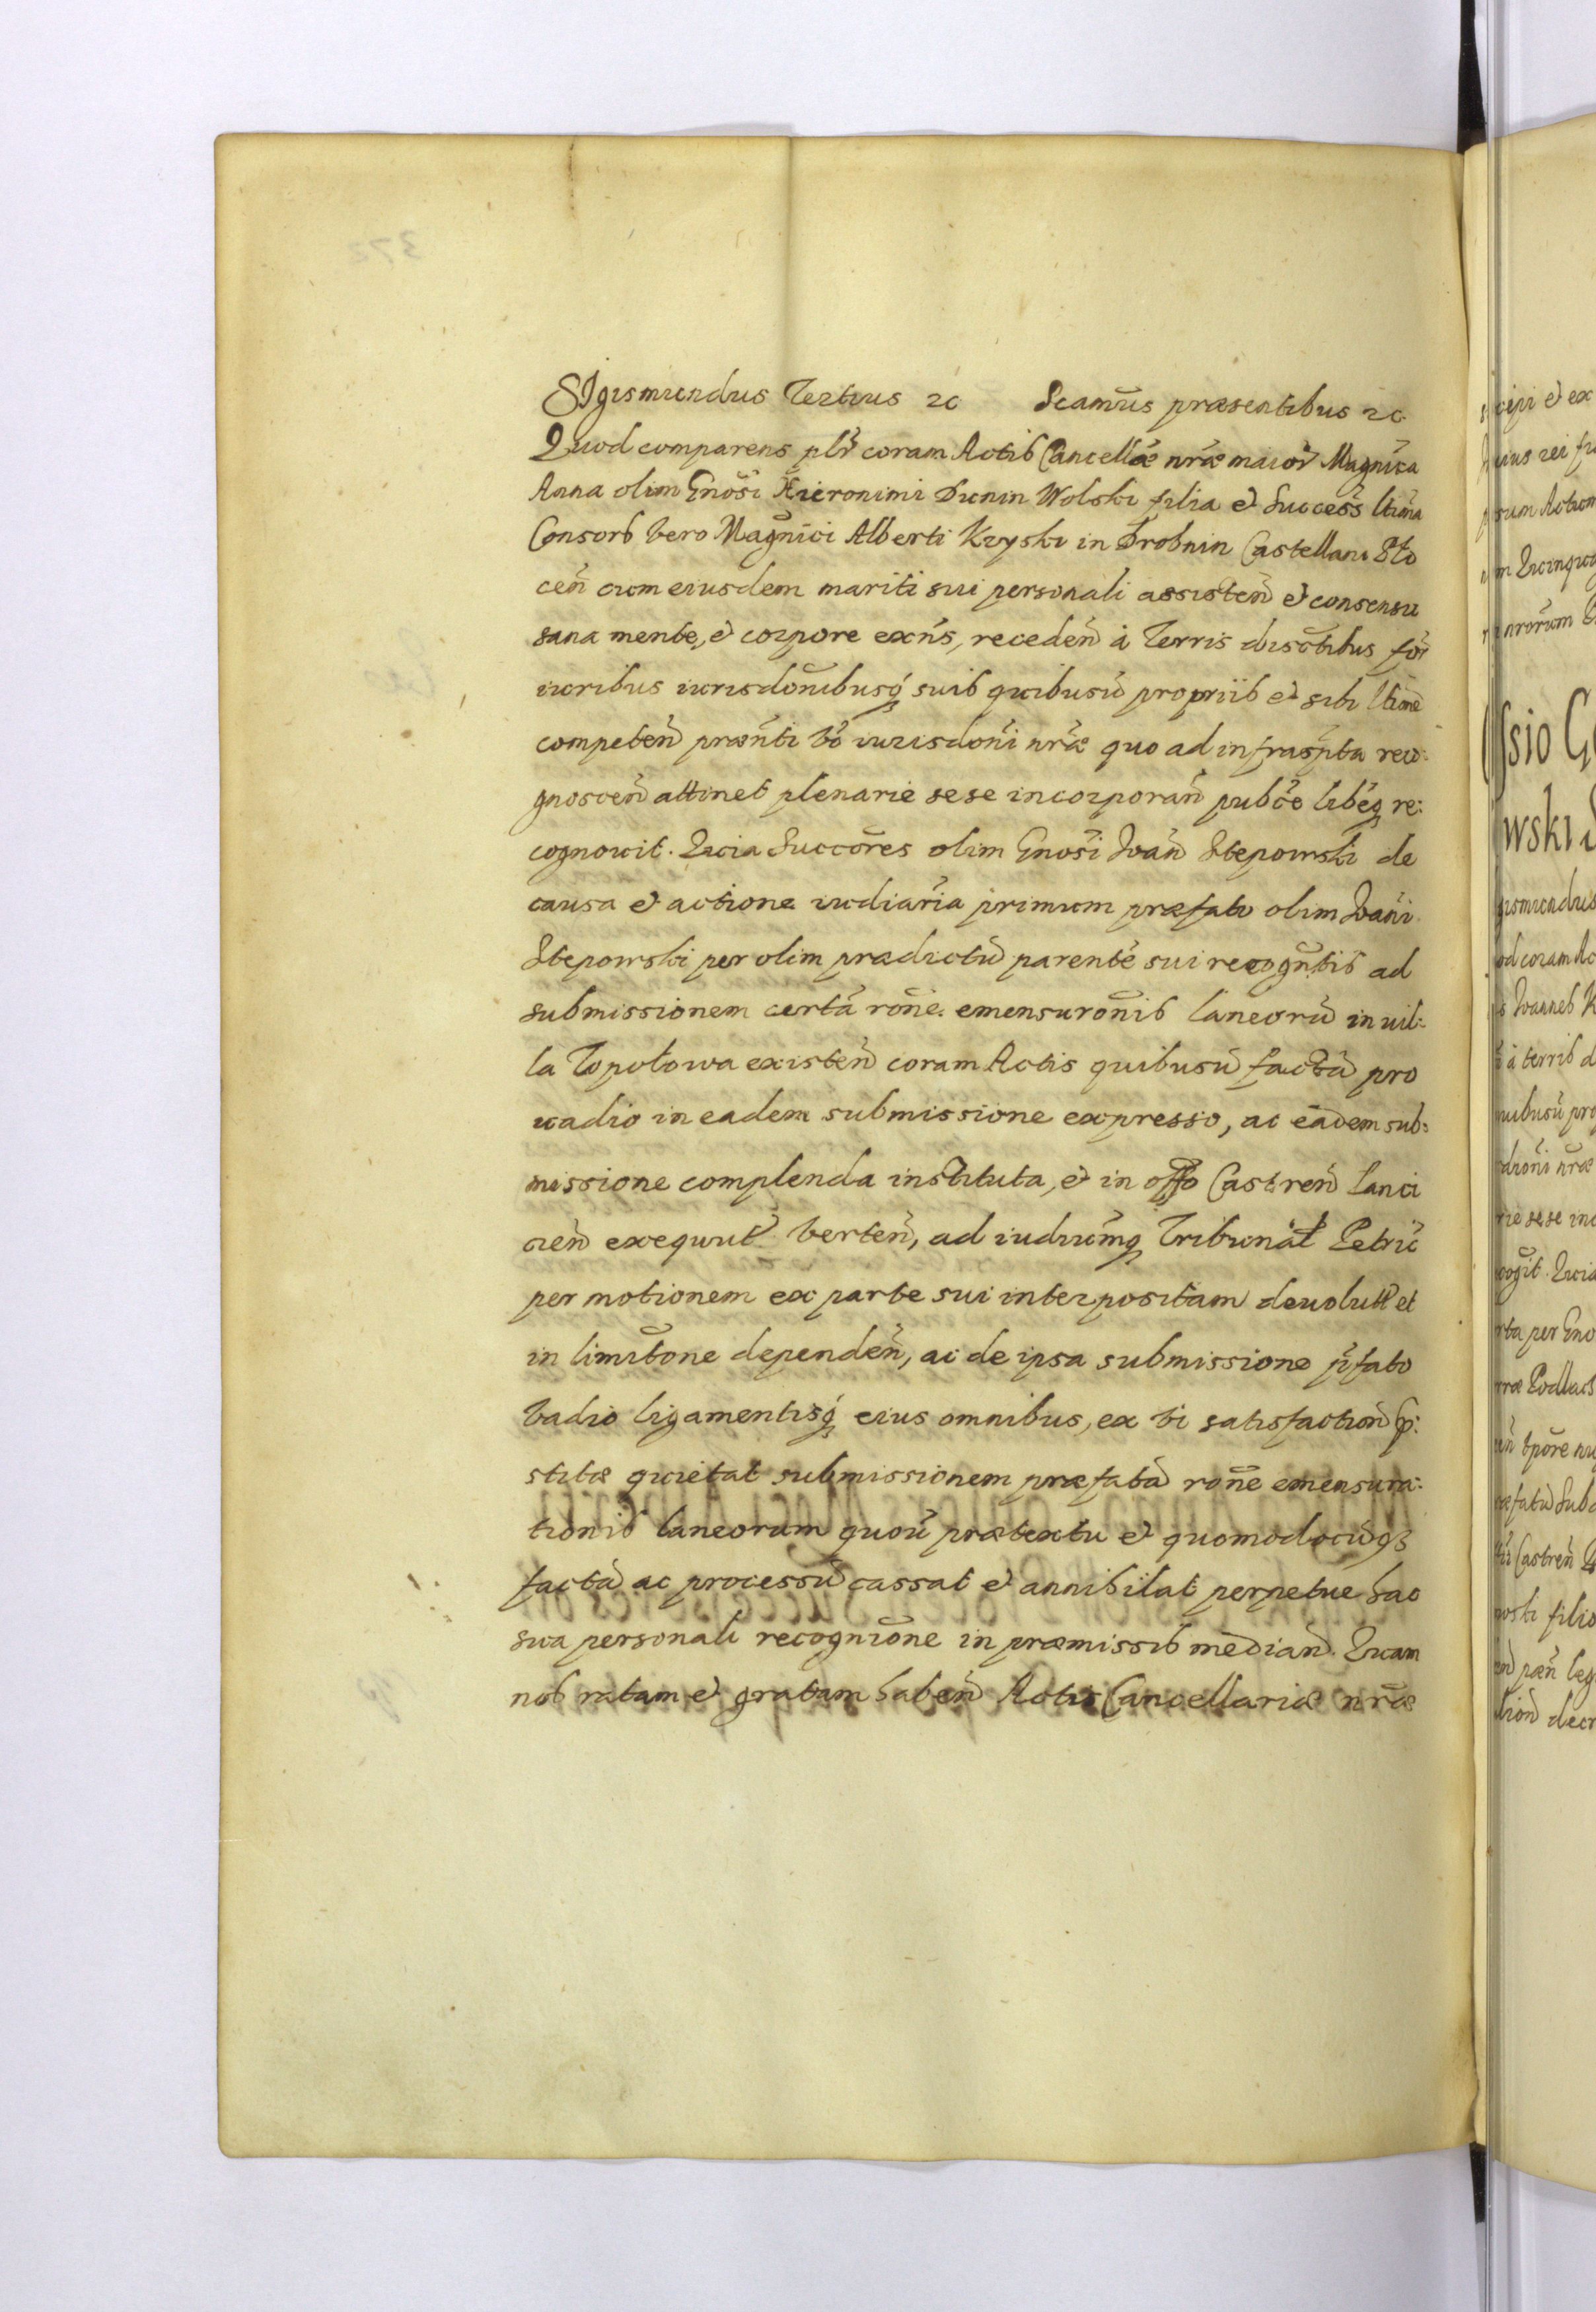 SIgismundus Tertius ɔc Scam̃us præsentibus ɔc.
Quod comparens plr̃ coram Actis Cancell̃æ nr̃æ maior̃ Magñica
Anna olim Gnosi Hieronimi Dunin Wolski filia et Success̃ ltima
Consors vero Magñici Alberti Kryski in Drobnin Castellani Plo
ceñ cum eiusdem mariti sui personali assisteñ et consensu
sana mente, et corpore exñs, recedeñ à Terris districtibus for̃
iuribus iurisdoñibusq suis quibusũ propriis et sibi ltime
competeñ præñti võ iurisdoñi nr̃æ quo ad infraspta reco:
gnosceñ attinet plenarie sese incorporañ publce libeq re:
cognovit. Quia Succores olim Gnosi Joañ Stepowski de
causa et actione iudiaria primum præfato olim Joañi
Stepowski per olim prædictũ parentẽ sui recogñtis ad
submissionem certã roñe emensuroñis laneorũ in vil:
la Topolowa existeñ coram Actis quibusũ factã pro
vadio in eadem submissione expresso, ac eadem sub:
missione complenda instituta, et in offo Castreñ Lanci
cieñ exequut̃ verteñ, ad iudiũmq Tribunal Petric̃
per motionem ex parte sui interpositam devolut̃ et
in limitone dependeñ, ac de ipsa submissione pfato
vadio ligamentisq eius omnibus, ex vi satisfactioñ p:
stitæ quietat submissionem præfatã roñe emensura:
tionis laneorum quoũ prætextu et quomodocũqз
factã ac processũ cassat et annihilat perpetue hac
sua personali recognione in præmissis mediañ. Quam
nos ratam et gratam habeñ Actis Cancellariæ nr̃æ